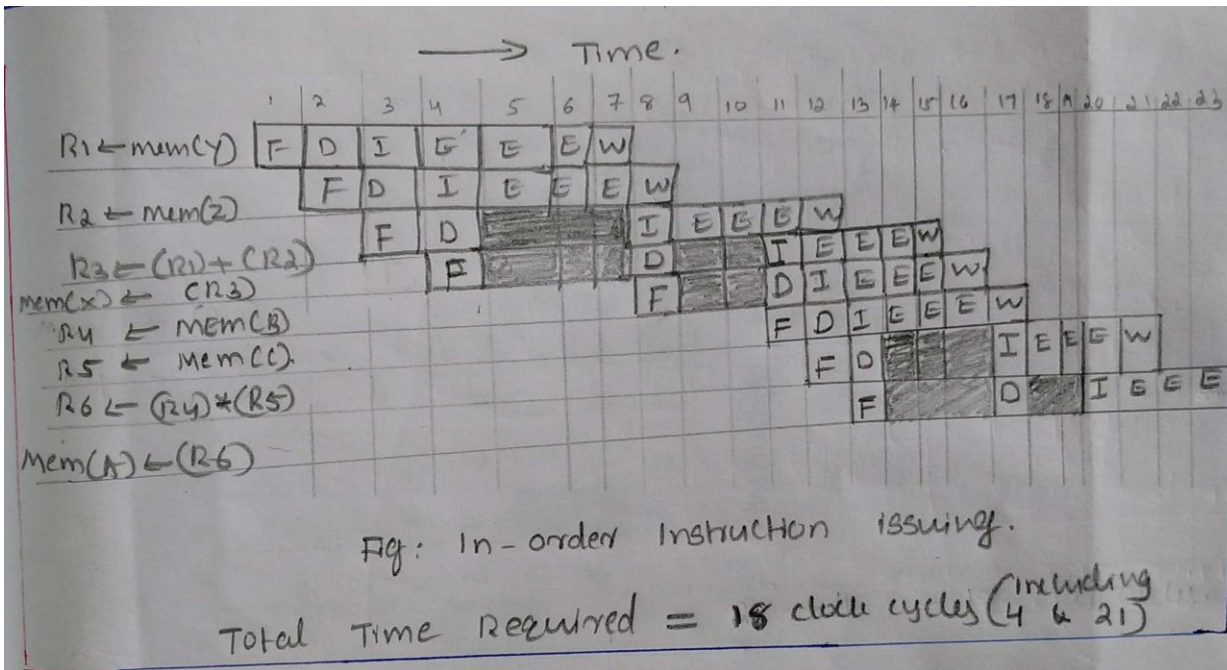 → Time.
1 2 3 4 5 6 7 8 9 10 11 12 13 14 15 16 17 18 19 20 21 22 23
R1 ← mem(Y) F D I E E E W
R2 ← mem(Z) F D I E E E W
R3 ← (R1) + (R2) F D I E E E W
mem(x) ← (R3) F D I E E E W
R4 ← MEM(B) F D I E E E W
R5 ← Mem(C). F D I E E E W
R6 ← (R4) * (R5) F D I E E E W
Mem(A) ← (R6) F D I E E E
Fig: In-order Instruction issuing.
Total Time Required = 18 clock cycles (including 4 & 21)